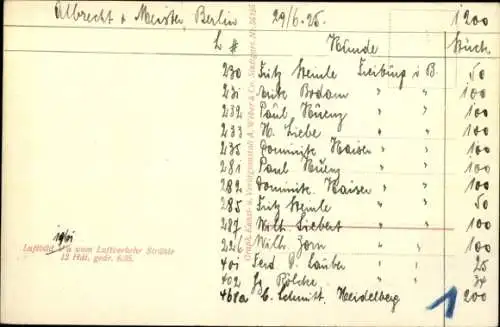 Albrecht & Meister, Berlin 29/6.25. 1200
L # Kunde Stück
230 Fritz Stemle Freiburg i B. 50
231 Anton Bodam " " 100
232 Paul Küenz " " 100
233 H. Liebe " " 100
235 Dominik Kaiser " " 100
281 Paul Küenz " " 100
282 Dominik. Kaiser " " 100
285 Fritz Stemle " " 50
287 Wilh. Siebert " " 100
226 Wilh. Zorn " " 100
401 Ferd. Lauber " " 25
402 Gg. Bölche " " 34
468a C. Schmitt. Heidelberg 200
1
Luftbild u. vom Luftverkehr Strähle
12 Hdt. gedr. 6.25.
Graph. Kunst- u. Verlagsanstalt A. Weber & Co. Stuttgart